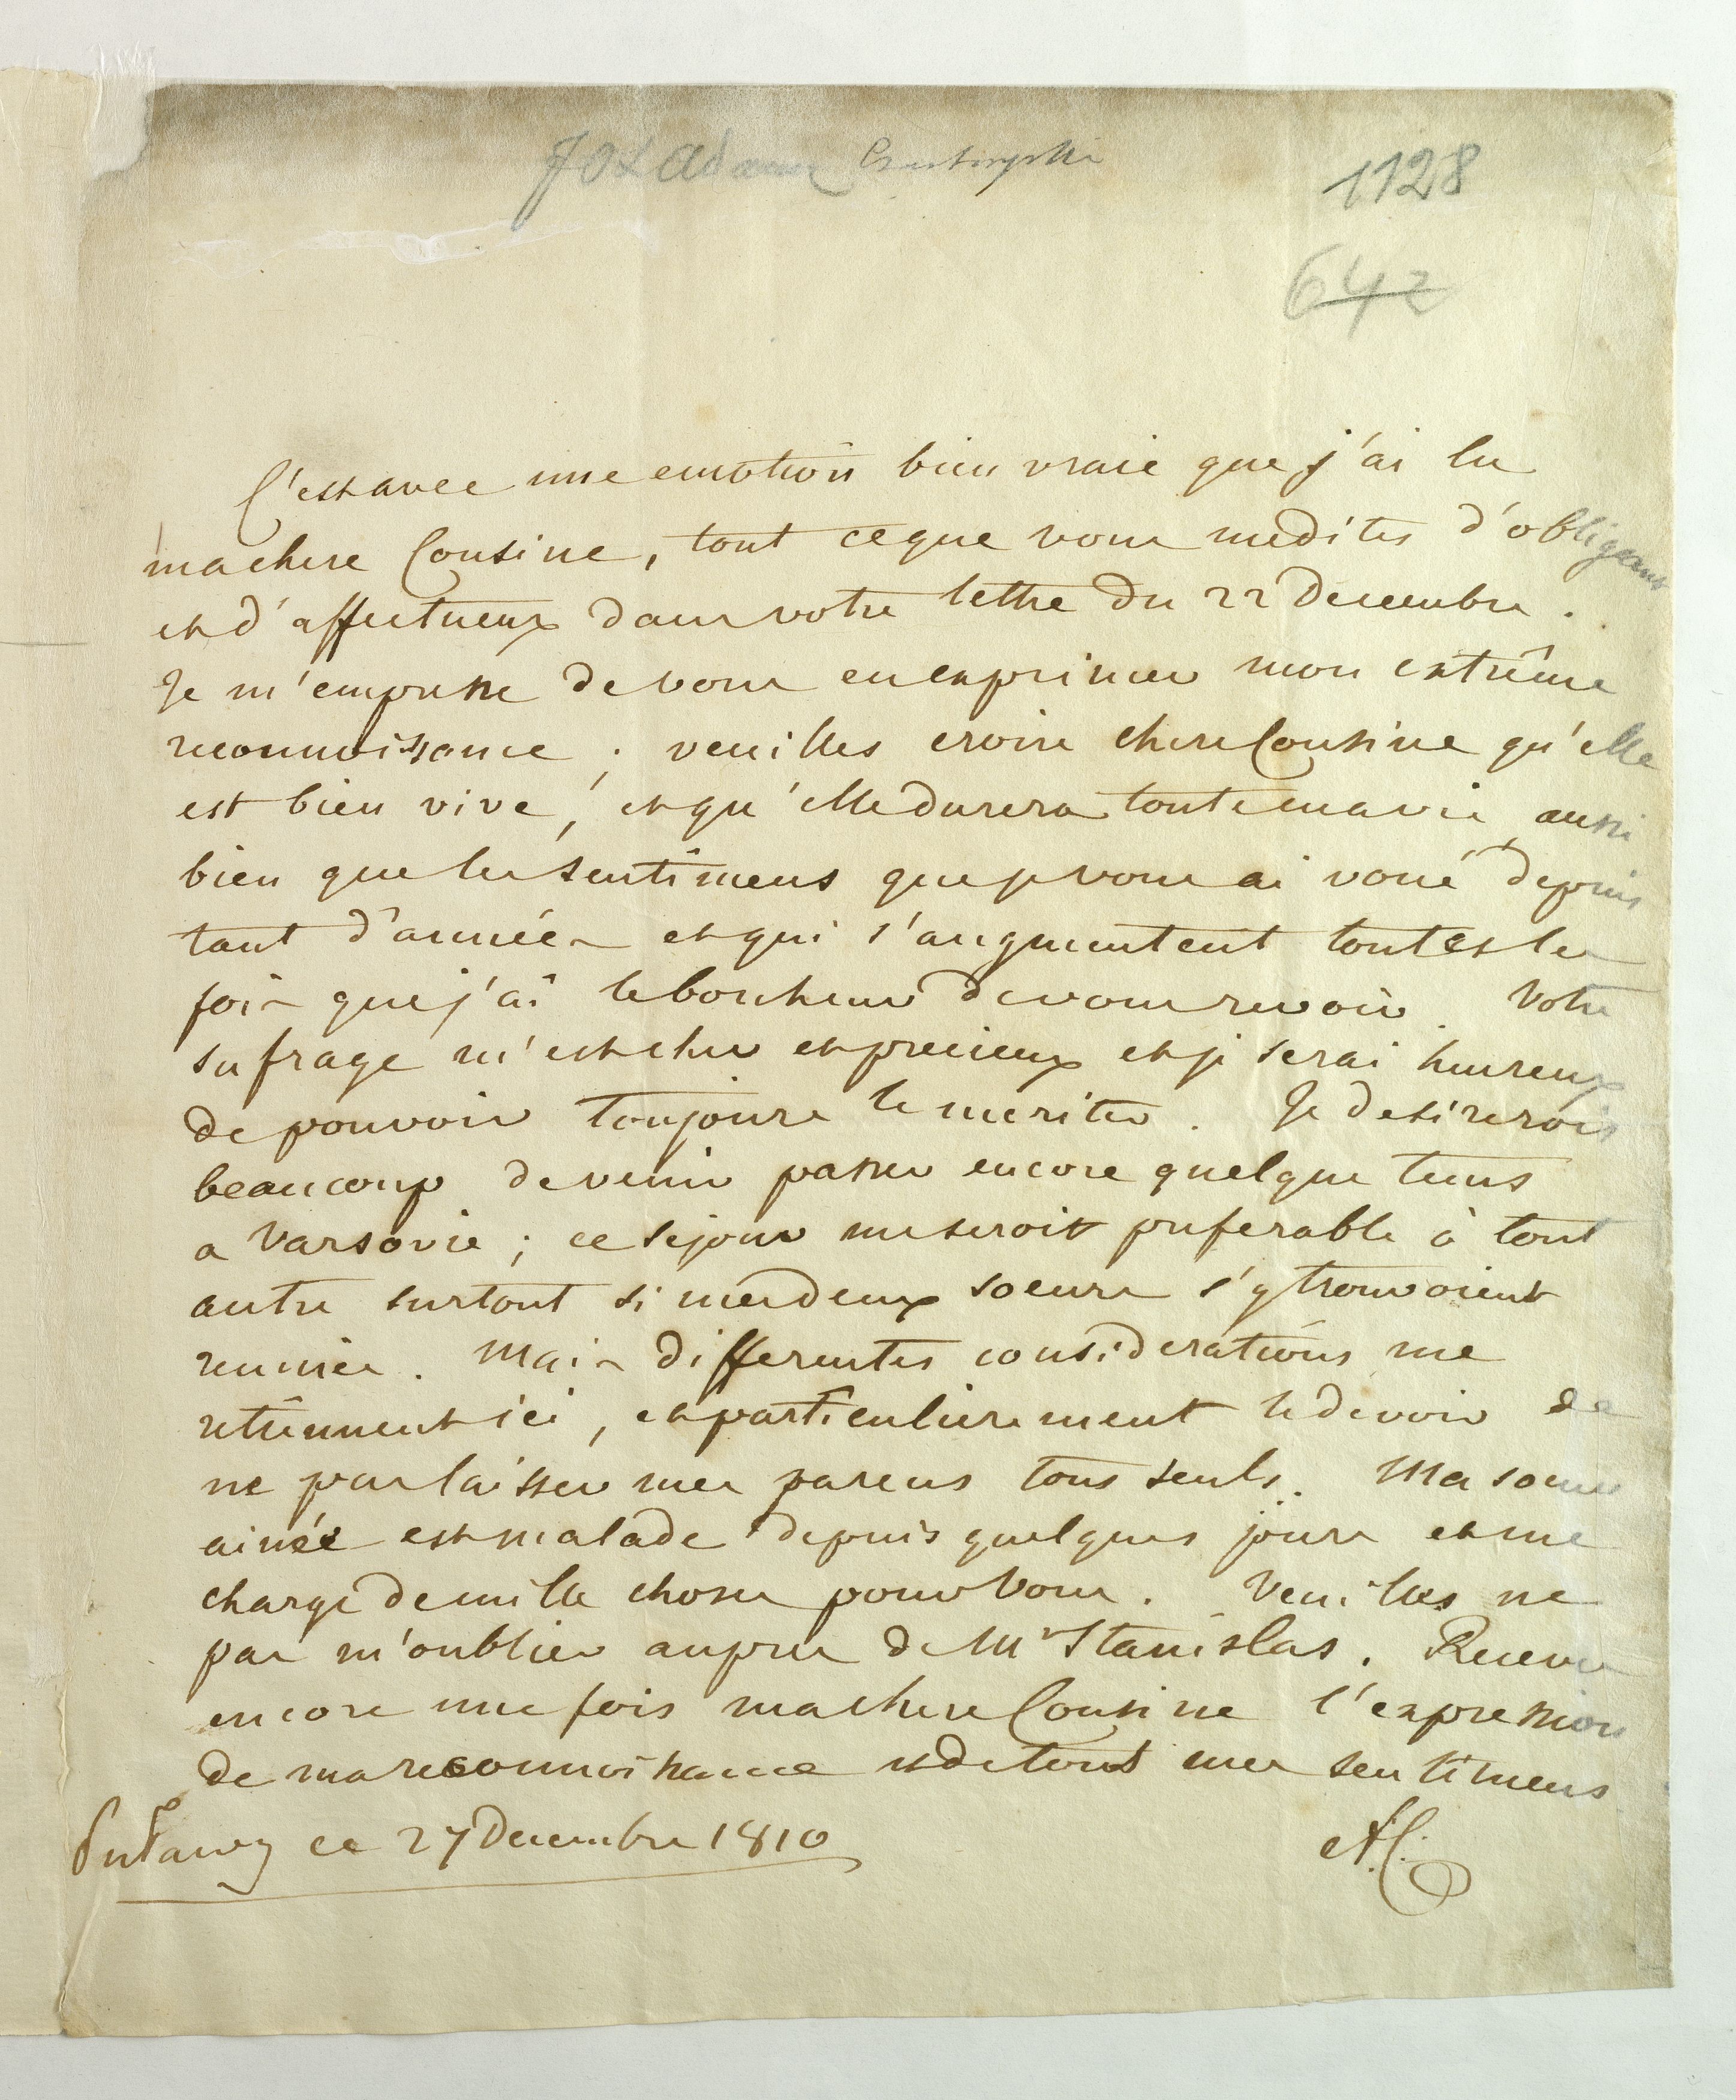 JOX Adam Czartoryski
1128
642
C'est avec une emotion bien vraie que j'ai lu
ma chere Cousine, tout ce que vous me dites d'obligeant
et d'affectueux dans votre lettre du 22 Decembre.
Je m'empresse de vous en exprimer mon extrême
reconnoissance ; veuilles croire chere Cousine qu'elle
est bien vive, et qu'elle durera toute ma vie aussi
bien que les sentimens que je vous ai voué depuis
tant d'années et qui s'augmentent toutes les
fois que j'ai le bonheur de vous revoir. Votre
sufrage m'est cher et precieux et je serai heureux
de pouvoir toujours le meriter. Je desirerois
beaucoup de venir passer encore quelque tems
a Varsovie ; ce sejour me seroit preferable à tout
autre surtout si mes deux soeurs s'y trouvoient
reunies. Mais differentes considerations me
retiennent ici, et particulierement le devoir de
ne pas laisser mes parens tous seuls. Ma soeur
ainée est malade depuis quelques jours et me
charge de mille choses pour Vous. Veuilles ne
pas m'oublier aupres de Mr Stanislas. Recevez
encore une fois ma chere Cousine l'expression
de ma reconnoissance et de tous mes sentimens
Puławy ce 27 Decembre 1810
A.C.